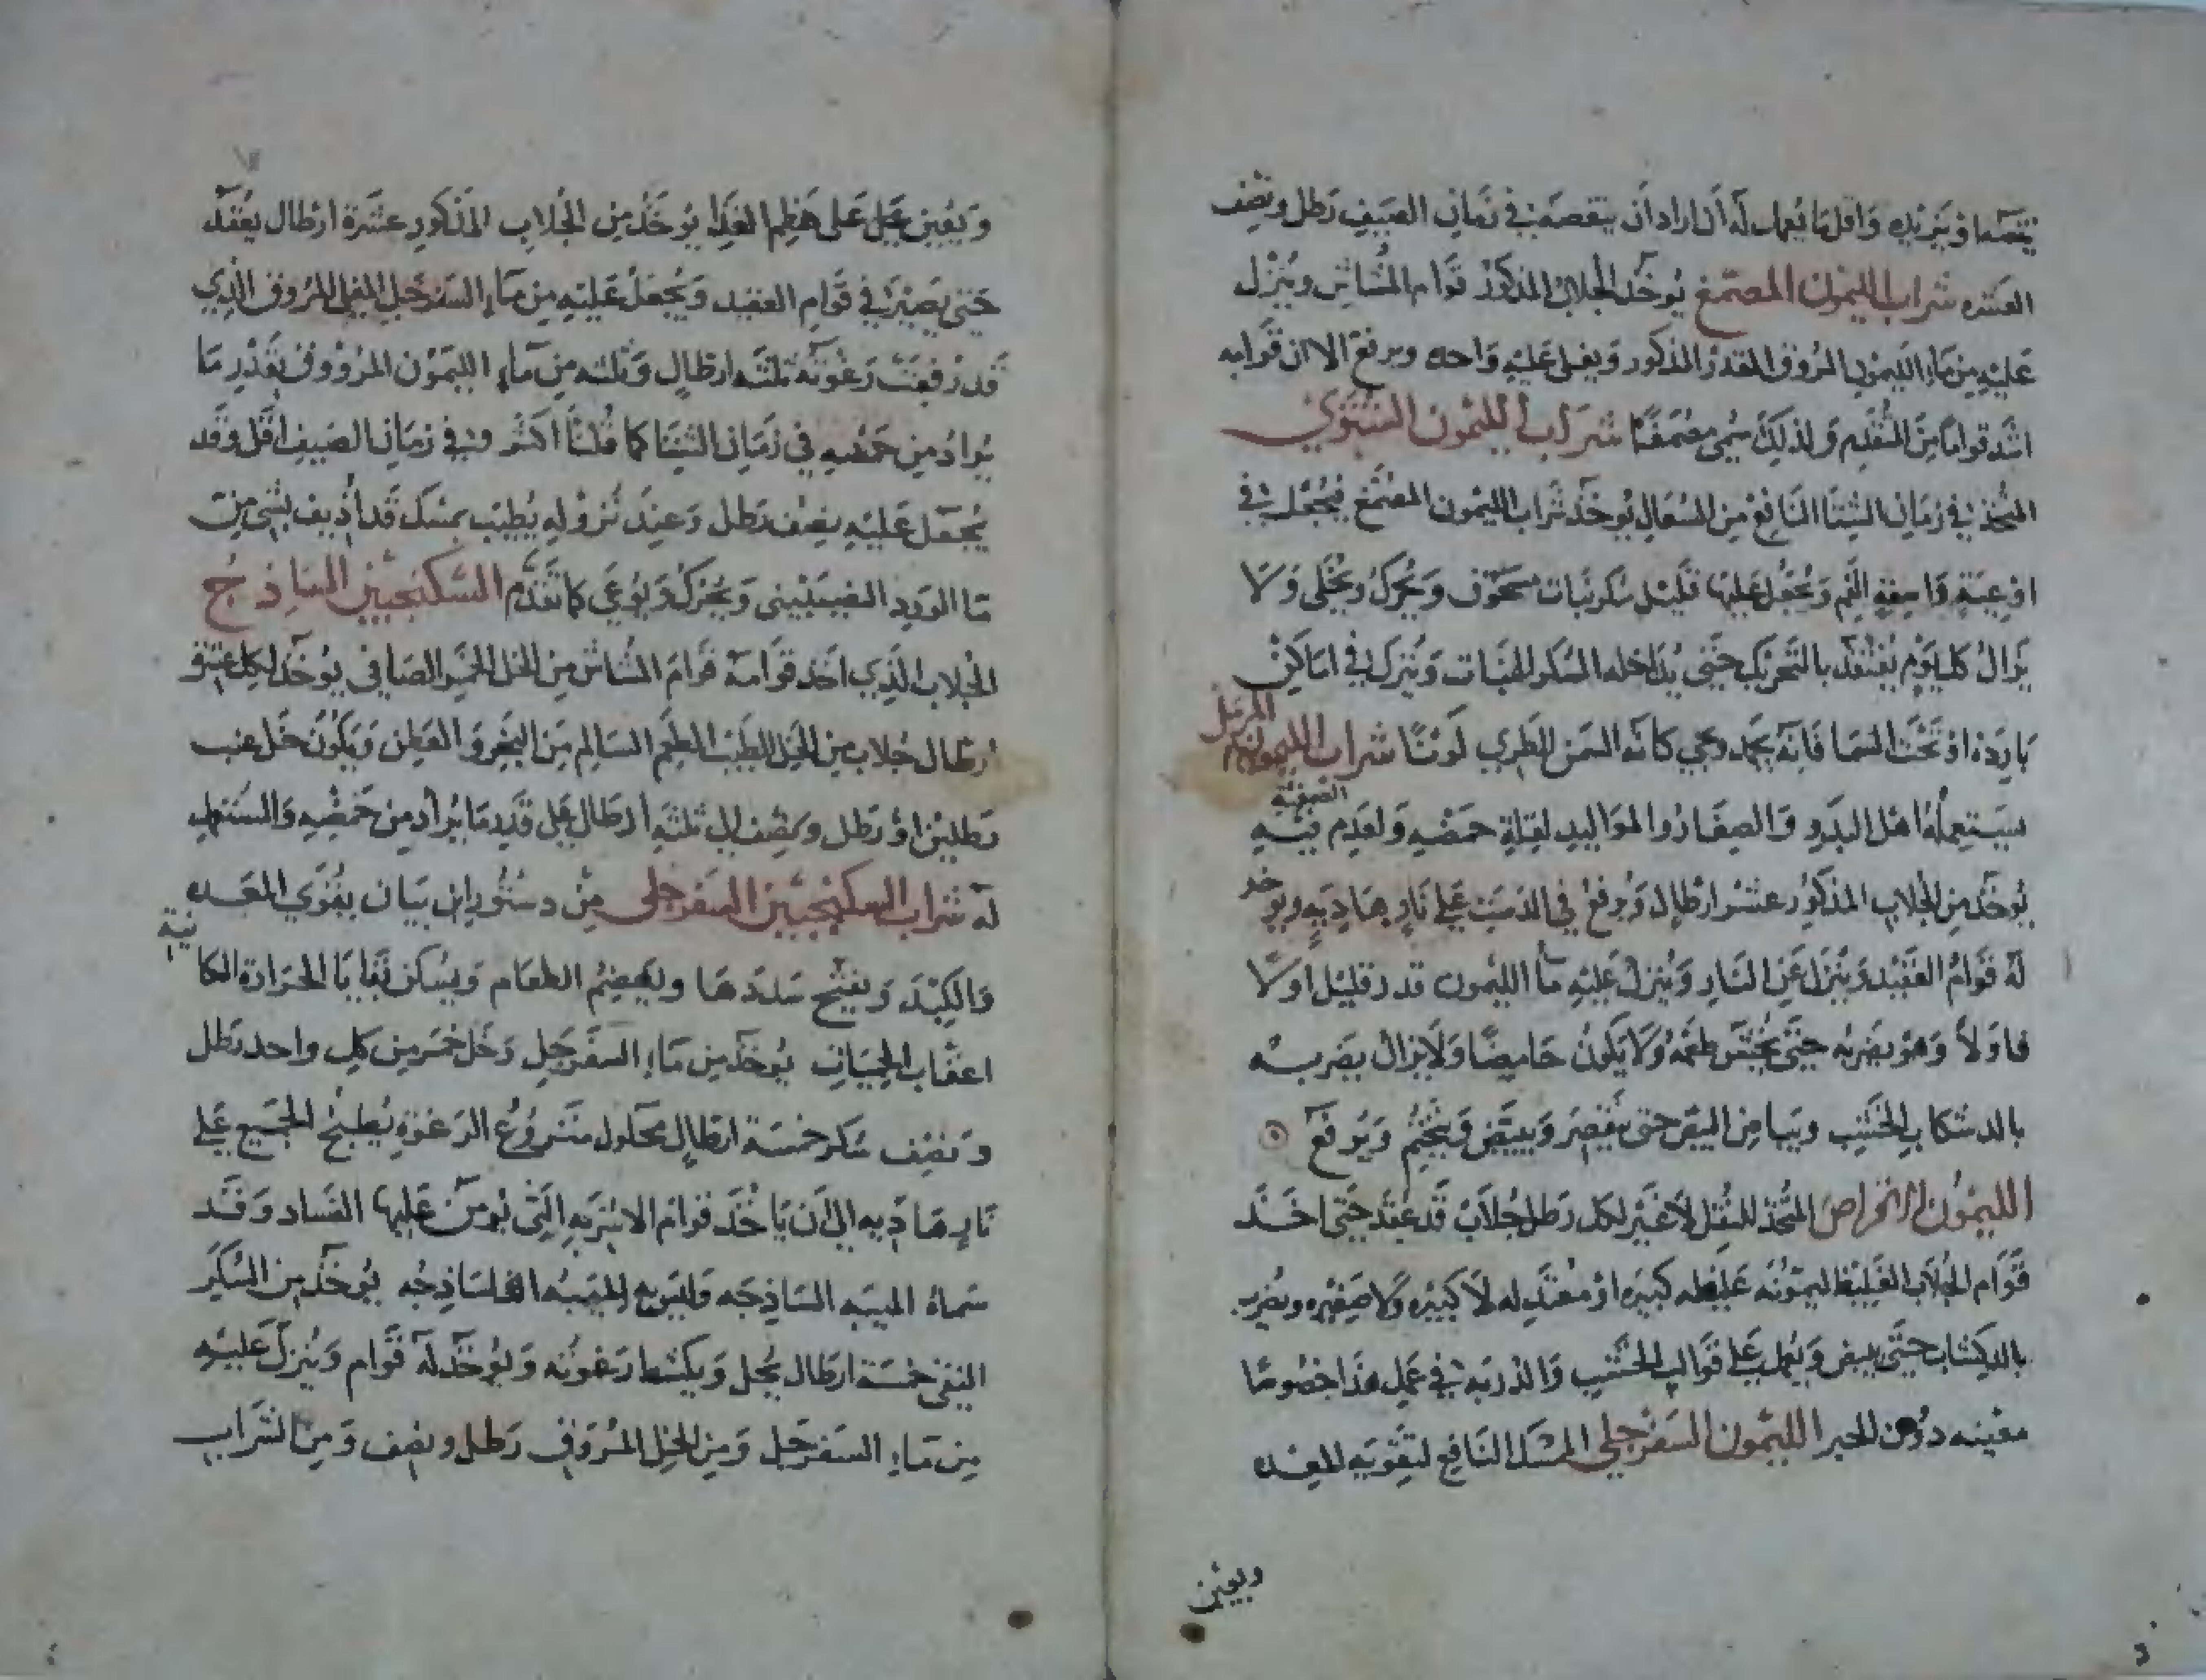 ينقصها ويزيده واقل ما يعمل له ان اراد ان ينقصه في زمان الصيف رطل ونصف
العشره شراب الليمون المصمغ يوخذ الجلاب المذكور قوام المشاش وينزل
عليه من ماء الليمون المروق المقدر المذكور ويغلى عليه واحده ويرفع الا ان قوامه
اشد قواما من المتقدم ولذلك سمى مصمغا شراب الليمون الشتوي
المتخذ في زمان الشتا النافع من السعال يوخذ شراب الليمون المصمغ فيجعل في
اوعية واسعة الفم ويجعل عليها قليل سكر نبات مسحوق ويحرك ويخلى ولا
يزال كل يوم يفتقد بالتحريك حتى يداخله السكر النبات ويترك في اماكن
باردة او تحت السما فانه يجمد ويجي كانه السمن الطري لونا شراب الليمون المرمل
يستعمله اهل البدو والصغار والمواليد لقلة حمضه ولعدم
يوخذ من الجلاب المذكور عشر ارطال ويرفع في الدست على نار هاديه ويوخذ
له قوام العقيد وينزل عن النار وينزل عليه ما الليمون قدر قليل اولا
فاولا وهو يضربه حتى يحس طعمه ولا يكون حامضا ولا يزال يضربه
بالدشكاب الخشب وبياض البيض حتى يقصر ويبيض ويختم ويرفع
الليمون اقراص المتخذ للنقل لا غير لكل رطل جلاب قد عقد حتى اخذ
قوام الجلاب الغليظ ليمونه غليظه كبيره او معتدله لا كبيره ولا صغيره ويضرب
بالدكشاب حتى يبيض ويعمل على قوالب الخشب والدربه في عمل هذا خصوصا
معينه دون الخبر الليمون السفرجلي الممسك النافع لتقويه المعده
ويعين
ويعين على هضم الغذا يوخذ من الجلاب المذكور عشرة ارطال يعقد
حتى يصير في قوام العقيد ويجعل عليه من ماء السفرجل المغلى المروق الذي
قد رفعت رغوته ثلثه ارطال وثلثه من ماء الليمون المروق بقدر ما
يراد من حمضه في زمان الشتا كما قلنا اكثر وفي زمان الصيف اقل وقد
يجعل عليه نصف رطل وعند نزوله يطيب بمسك قد اذيف بشي من
ما الورد النصيبيني ويحرك ويوعي كما تقدم السكنجبين الساذج
الجلاب الذي اخذ قوامه قوام المشاش من الخل الخمر الصافي يوخذ لكل عشر
ارطال جلاب من الخل الطيب الطعم السالم من التغير والعطن ويكون خل عنب
رطلين او رطل ونصف الى ثلثه ارطال على قدر ما يراد من حمضه والمستعمل
له شراب السكنجبين السفرجلي من دستور ابن بيان يقوي المعده
والكبد ويفتح سددها ويهضم الطعام ويسكن بقايا الحرارة الكاينة
اعقاب الحميات يوخذ من ماء السفرجل وخل خمر من كل واحد رطل
ونصف سكر خمسة ارطال محلول منزوع الرغوه يطبخ الجميع على
نار هاديه الى ان ياخذ قوام الاشربه التي يومن عليها الفساد وقد
سماه الميبه الساذجه يوخذ من السكر
النقي خمسة ارطال يحل ويكشط رغوته ويوخذ له قوام وينزل عليه
من ماء السفرجل ومن الخل المروق رطل ونصف ومن الشراب